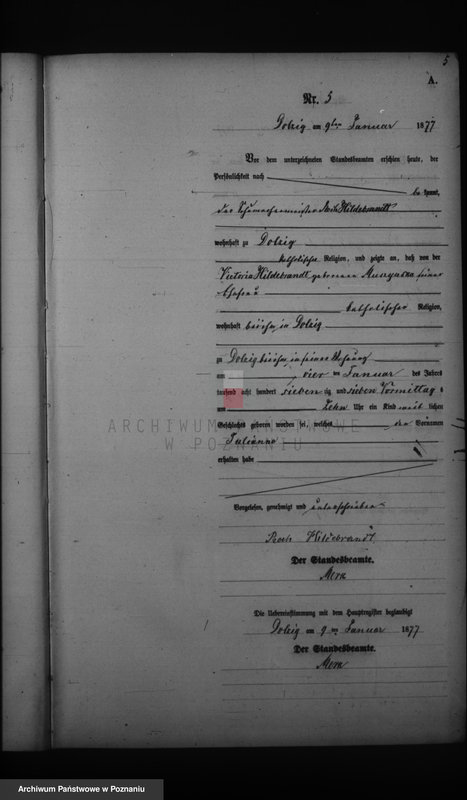 5
A.
Nr. 5
Dolzig am 9ten Januar 1877
Vor dem unterzeichneten Standesbeamten erschien heute, der
Persönlichkeit nach
be kannt,
der Schuhmachermeister Hildebrandt
wohnhaft zu Dolzig
katholischer Religion, und zeigte an, daß von der
Victoria Hildebrandt geborenen seiner
Ehefrau
katholischer Religion,
wohnhaft bei ihm in Dolzig
zu Dolzig in seiner Wohnung
am vier ten Januar des Jahres
tausend acht hundert sieben zig und sieben Vormittag s
um zehn Uhr ein Kind weib lichen
Geschlechts geboren worden sei, welches den Vornamen
Julianna
erhalten habe
Vorgelesen, genehmigt und unterschrieben
Roch Hildebrandt
Der Standesbeamte.
Die Uebereinstimmung mit dem Hauptregister beglaubigt
Dolzig am 9 ten Januar 1877
Der Standesbeamte.
ARCHIWUM PAŃSTWOWE
W POZNANIU
Archiwum Państwowe w Poznaniu